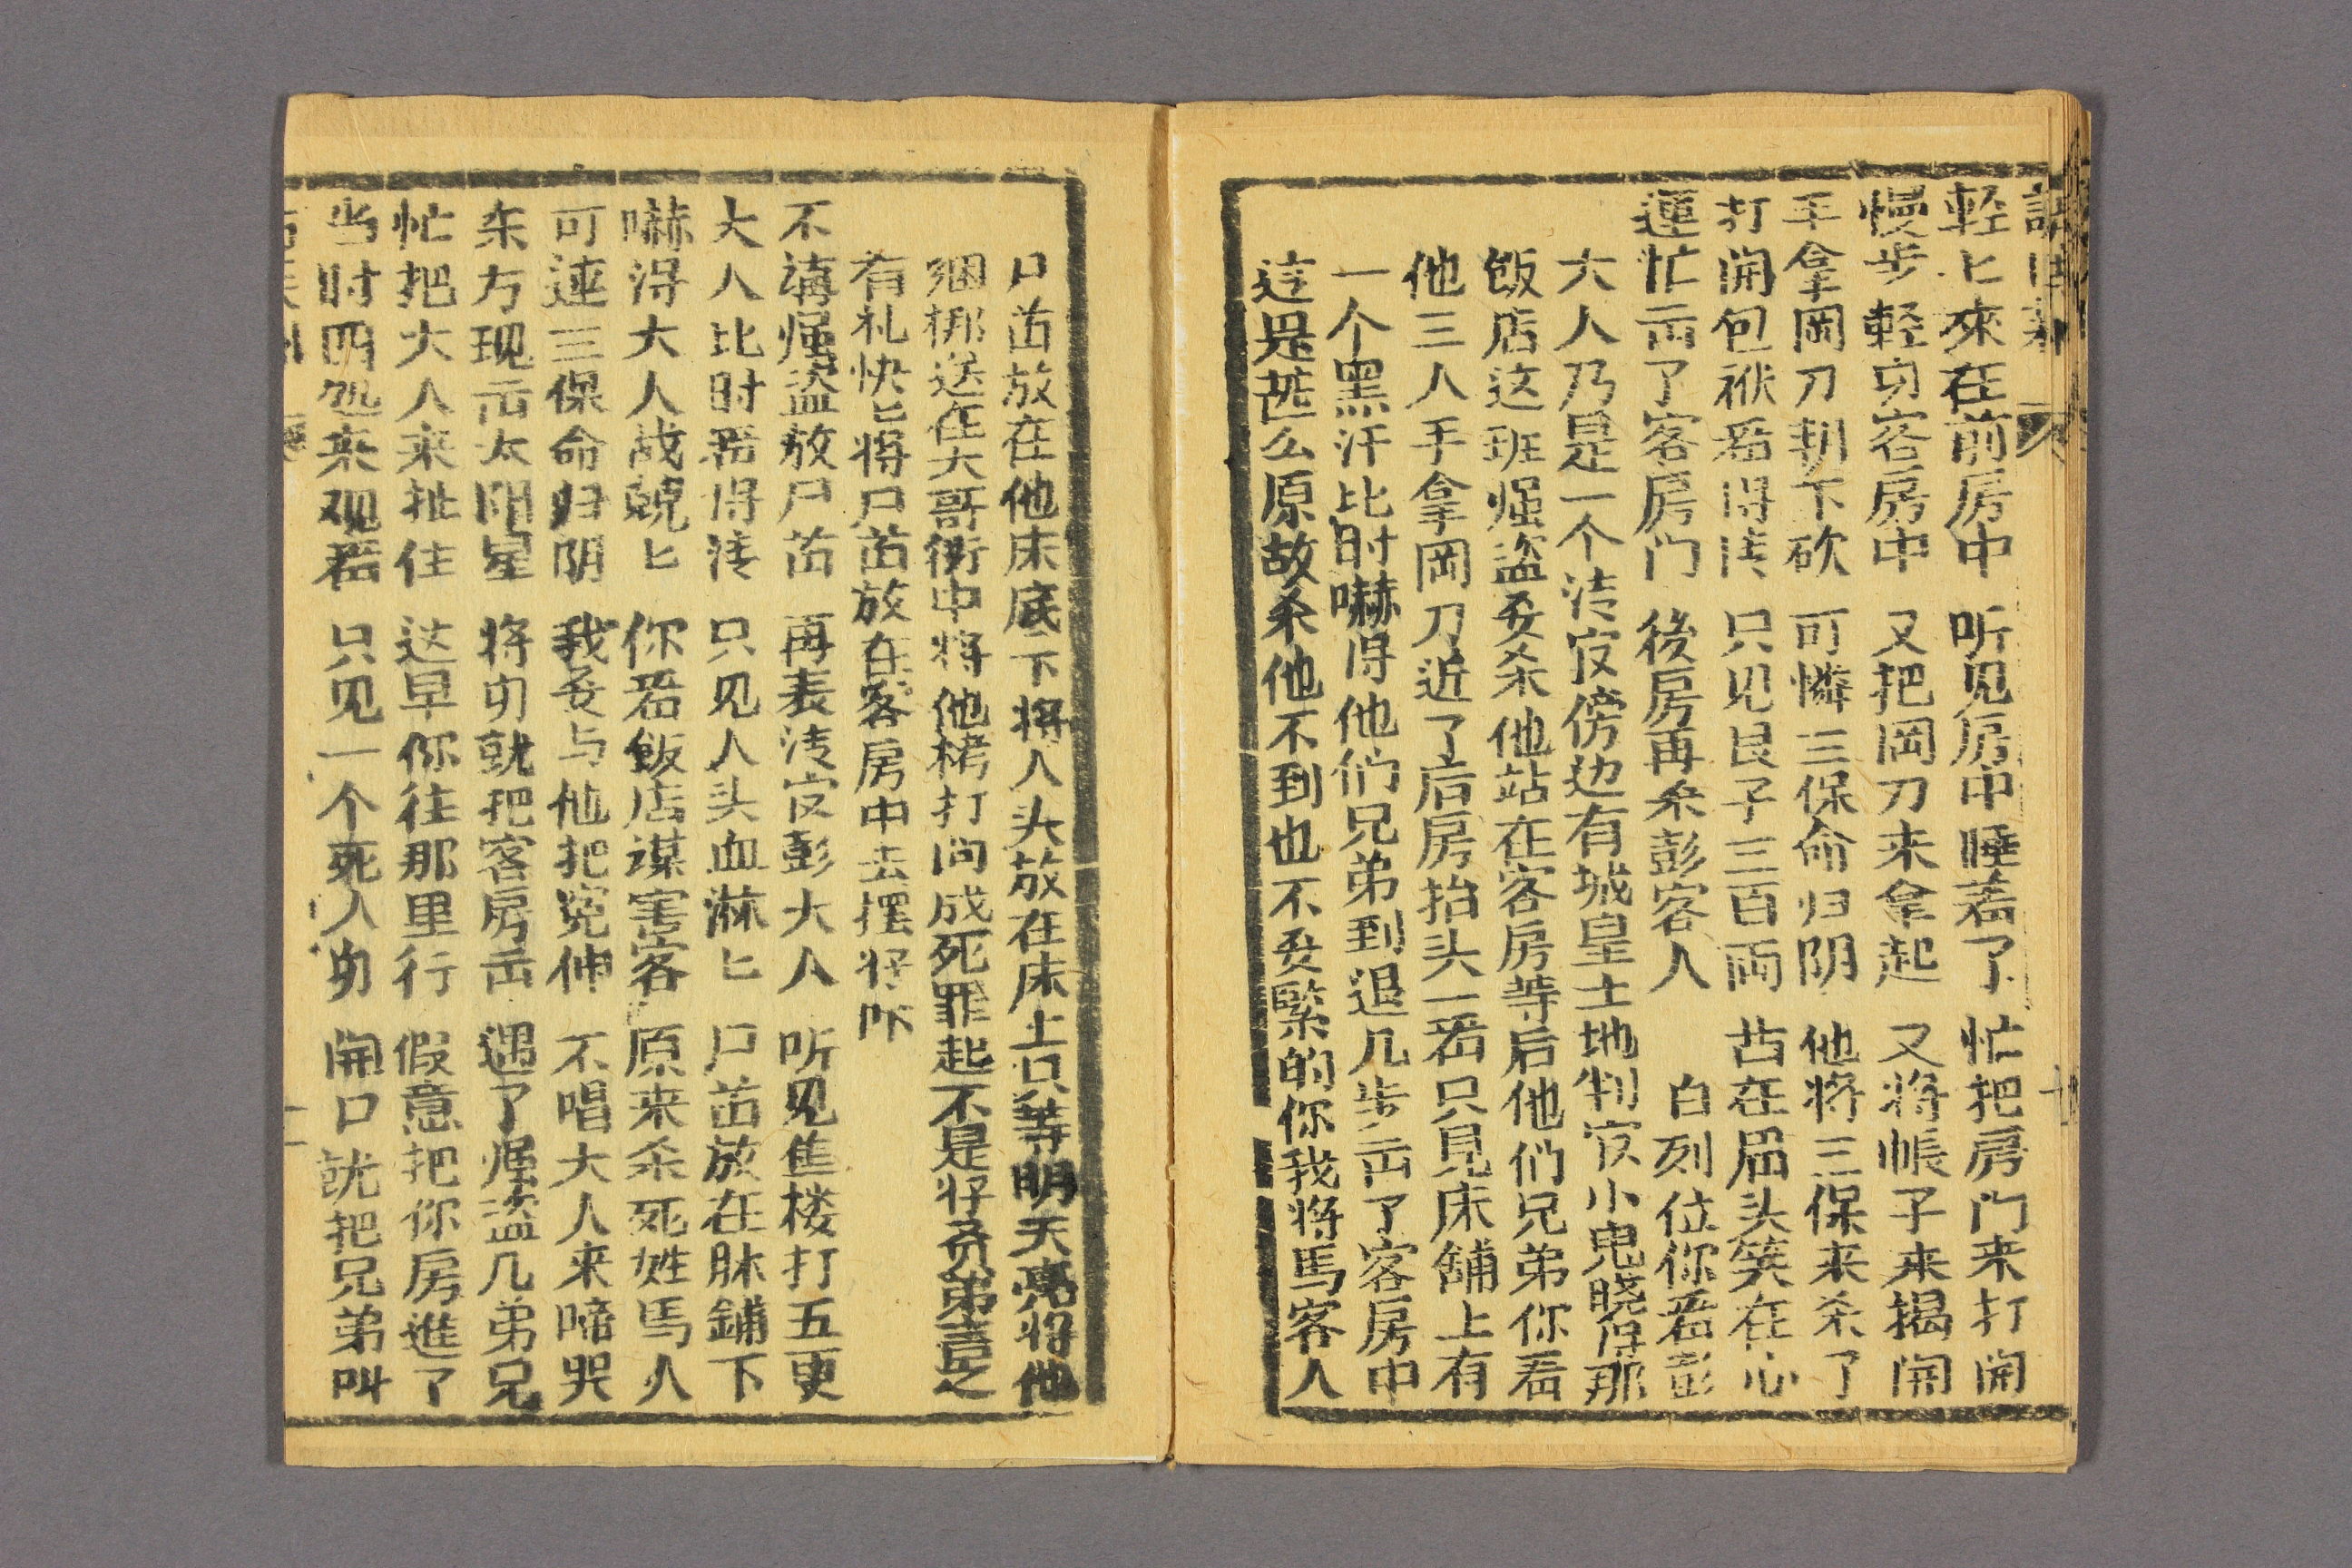 輕匕來在前房中 听见房中睡着了 忙把房门来打開
慢步輕匆客房中 又把岡刀来拿起 又将帳子来揭開
手拿岡刀朝下砍 可憐三保命归阴 他将三保来杀了
打開包袱看得清 只见艮子三百両 苦在眉头笑在心
連忙击了客房门 後房再杀彭客人 白列位你看彭
大人乃是一个清官傍边有城皇土地判官小鬼晓得那
飯店这班强盗要杀他站在客房等后他们兄弟你看
他三人手拿岡刀近了后房抬头一看只見床舖上有
一个黑汗比时嚇得他们兄弟到退几步击了客房中
这是甚么原故杀他不到也不要緊的你我将馬客人
尸首放在他床底下将人头放在床上只等明天亮将他
綑梆送在大哥衙中将他栲打问成死罪起不是好贤弟言之
有礼快匕将尸首放在客房中去摆好咋
不講强盗放尸首 再表清官彭大人 听见焦楼打五更
大人比时看得清 只见人头血淋匕 尸首放在床鋪下
嚇得大人战兢匕 你看飯店谋害客 原来杀死姓馬人
可連三保命归阴 我要与他把冤伸 不唱大人来啼哭
东方现击太阳星 将匆就把客房击 遇了强盗几弟兄
忙把大人来扯住 这早你往那里行 假意把你房進了
当时四処来观看 只见一个死人匆 開口就把兄弟叫